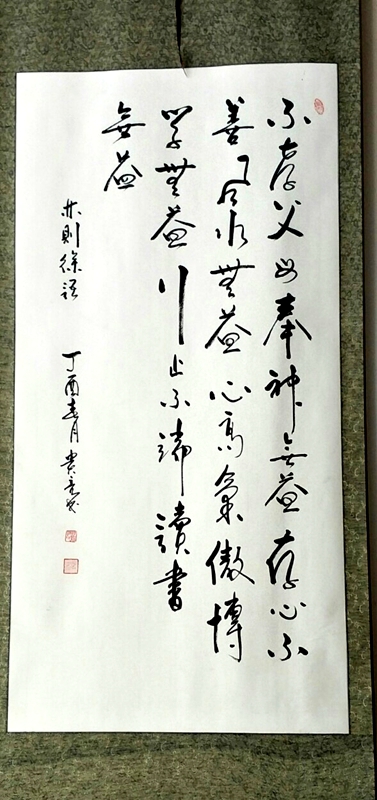 不孝父母奉神無益存心不
善風水無益心高氣傲博
學無益行止不端讀書
無益
林則徐語 丁酉春月